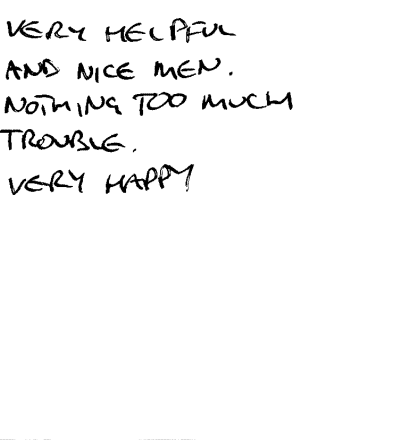 VERY HELPFUL
AND NICE MEN.
NOTHING TOO MUCH
TROUBLE.
VERY HAPPY